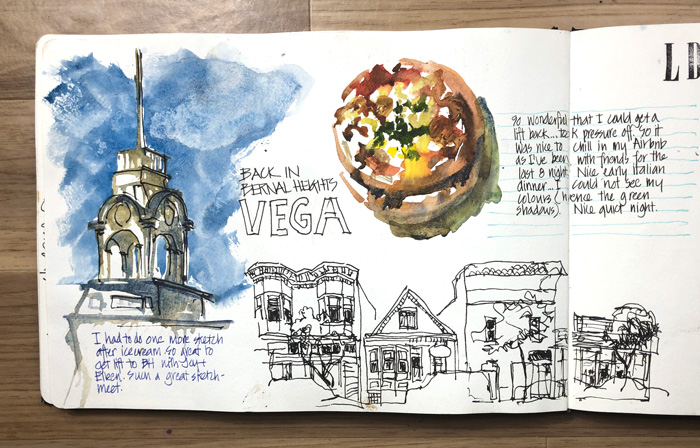 BACK IN
BERNAL HEIGHTS
VEGA
I had to do one more sketch
after icecream. So great to
get lift to BH with Jay +
Eileen. Such a great sketch-
meet.
So wonderful that I could get a
lift back... pressure off. So it
was nice to chill in my Airbnb
as I've been with friends for the
last 8 night. Nice early Italian
dinner. I could not see my
colours (hence the green
shadows). Nice quiet night.
L